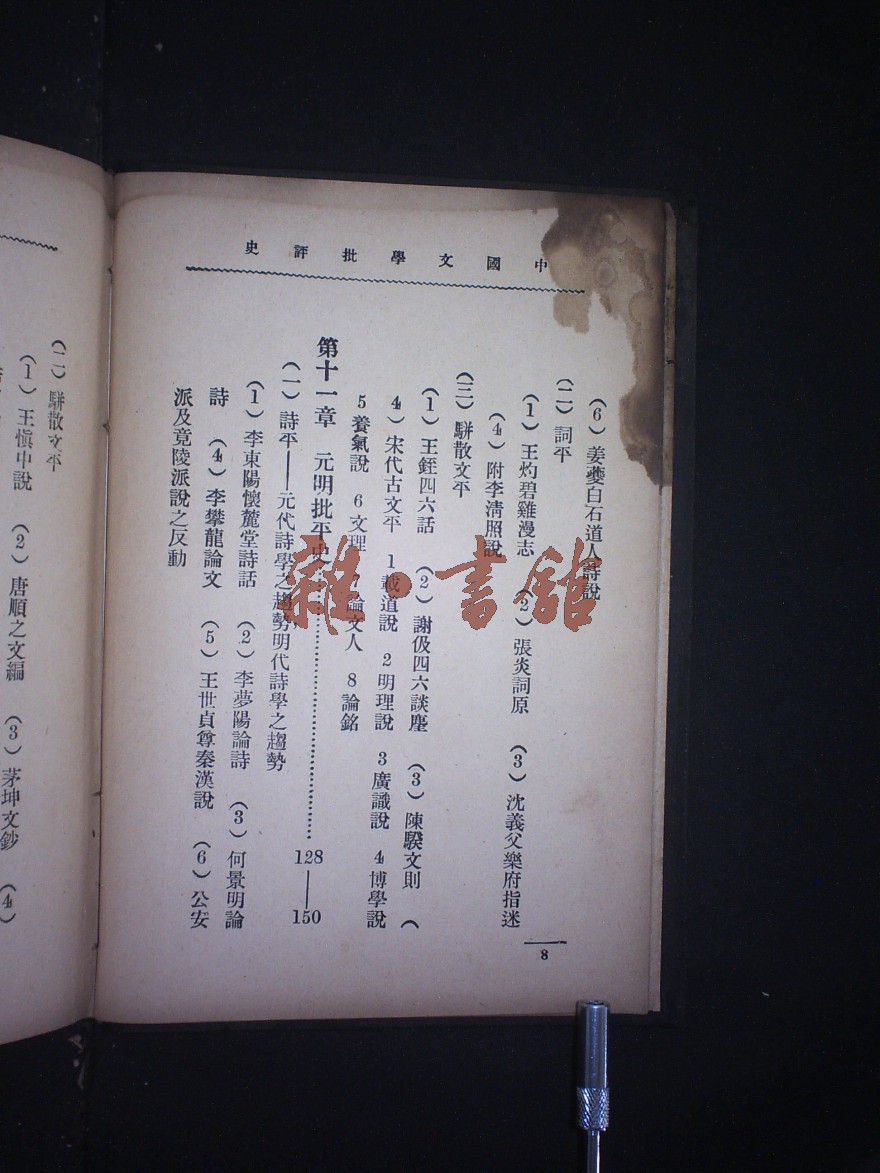 中國文學批評史
（6）姜夔白石道人詩說
（二）詞平
（1）王灼碧雞漫志　（2）張炎詞原　（3）沈義父樂府指迷
（4）附李清照說
（三）駢散文平
（1）王銍四六話　（2）謝伋四六談麈　（3）陳騤文則　（
4）宋代古文平　1載道說　2明理說　3廣識說　4博學說
5養氣說　6文理　7論文人　8論銘
第十一章　元明批平史…………128——150
（一）詩平——元代詩學之趨勢明代詩學之趨勢
（1）李東陽懷麓堂詩話　（2）李夢陽論詩　（3）何景明論
詩　（4）李攀龍論文　（5）王世貞尊秦漢說　（6）公安
派及竟陵派說之反動
8
（二）駢散文平
（1）王慎中說　（2）唐順之文編　（3）茅坤文鈔　（4）
雜·書館